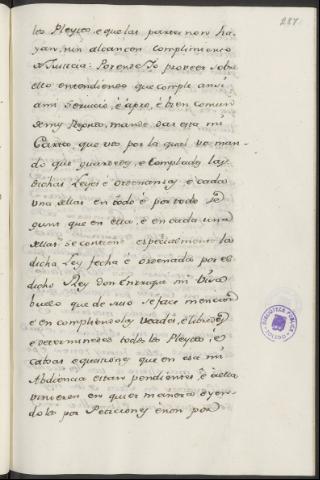 287
los Pleytos, e que las partes non ha-
yan, nin alcancen complimiento
de Justicia: Por ende Yo proveer sobre
ello entendiendo que cumple ansi
a mi servicio, è à pro, è bien comun
de mis Reynos, mandè dar esta mi
Carta, que vos por la qual vos man-
do que guardedes, e complades las
dichas Leyes è ordenanzas, è cada
una dellas en todo è por todo, se-
gunt que en ella, è en cada una
dellas se contiene especialmente la
dicha Ley fecha è ordenada por el
dicho Rey Don Enrique mi Visa-
buelo que de suso se face mencion
e en compliendolas veades, è libredes
è determinedes todos los Pleytos, è
cabsas e questiones que en esa mi
Abdiencia estan pendientes, è à ella
vinieren en qualquier manera oyen-
dolos por Peticiones è non por
BIBLIOTECA PUBLICA